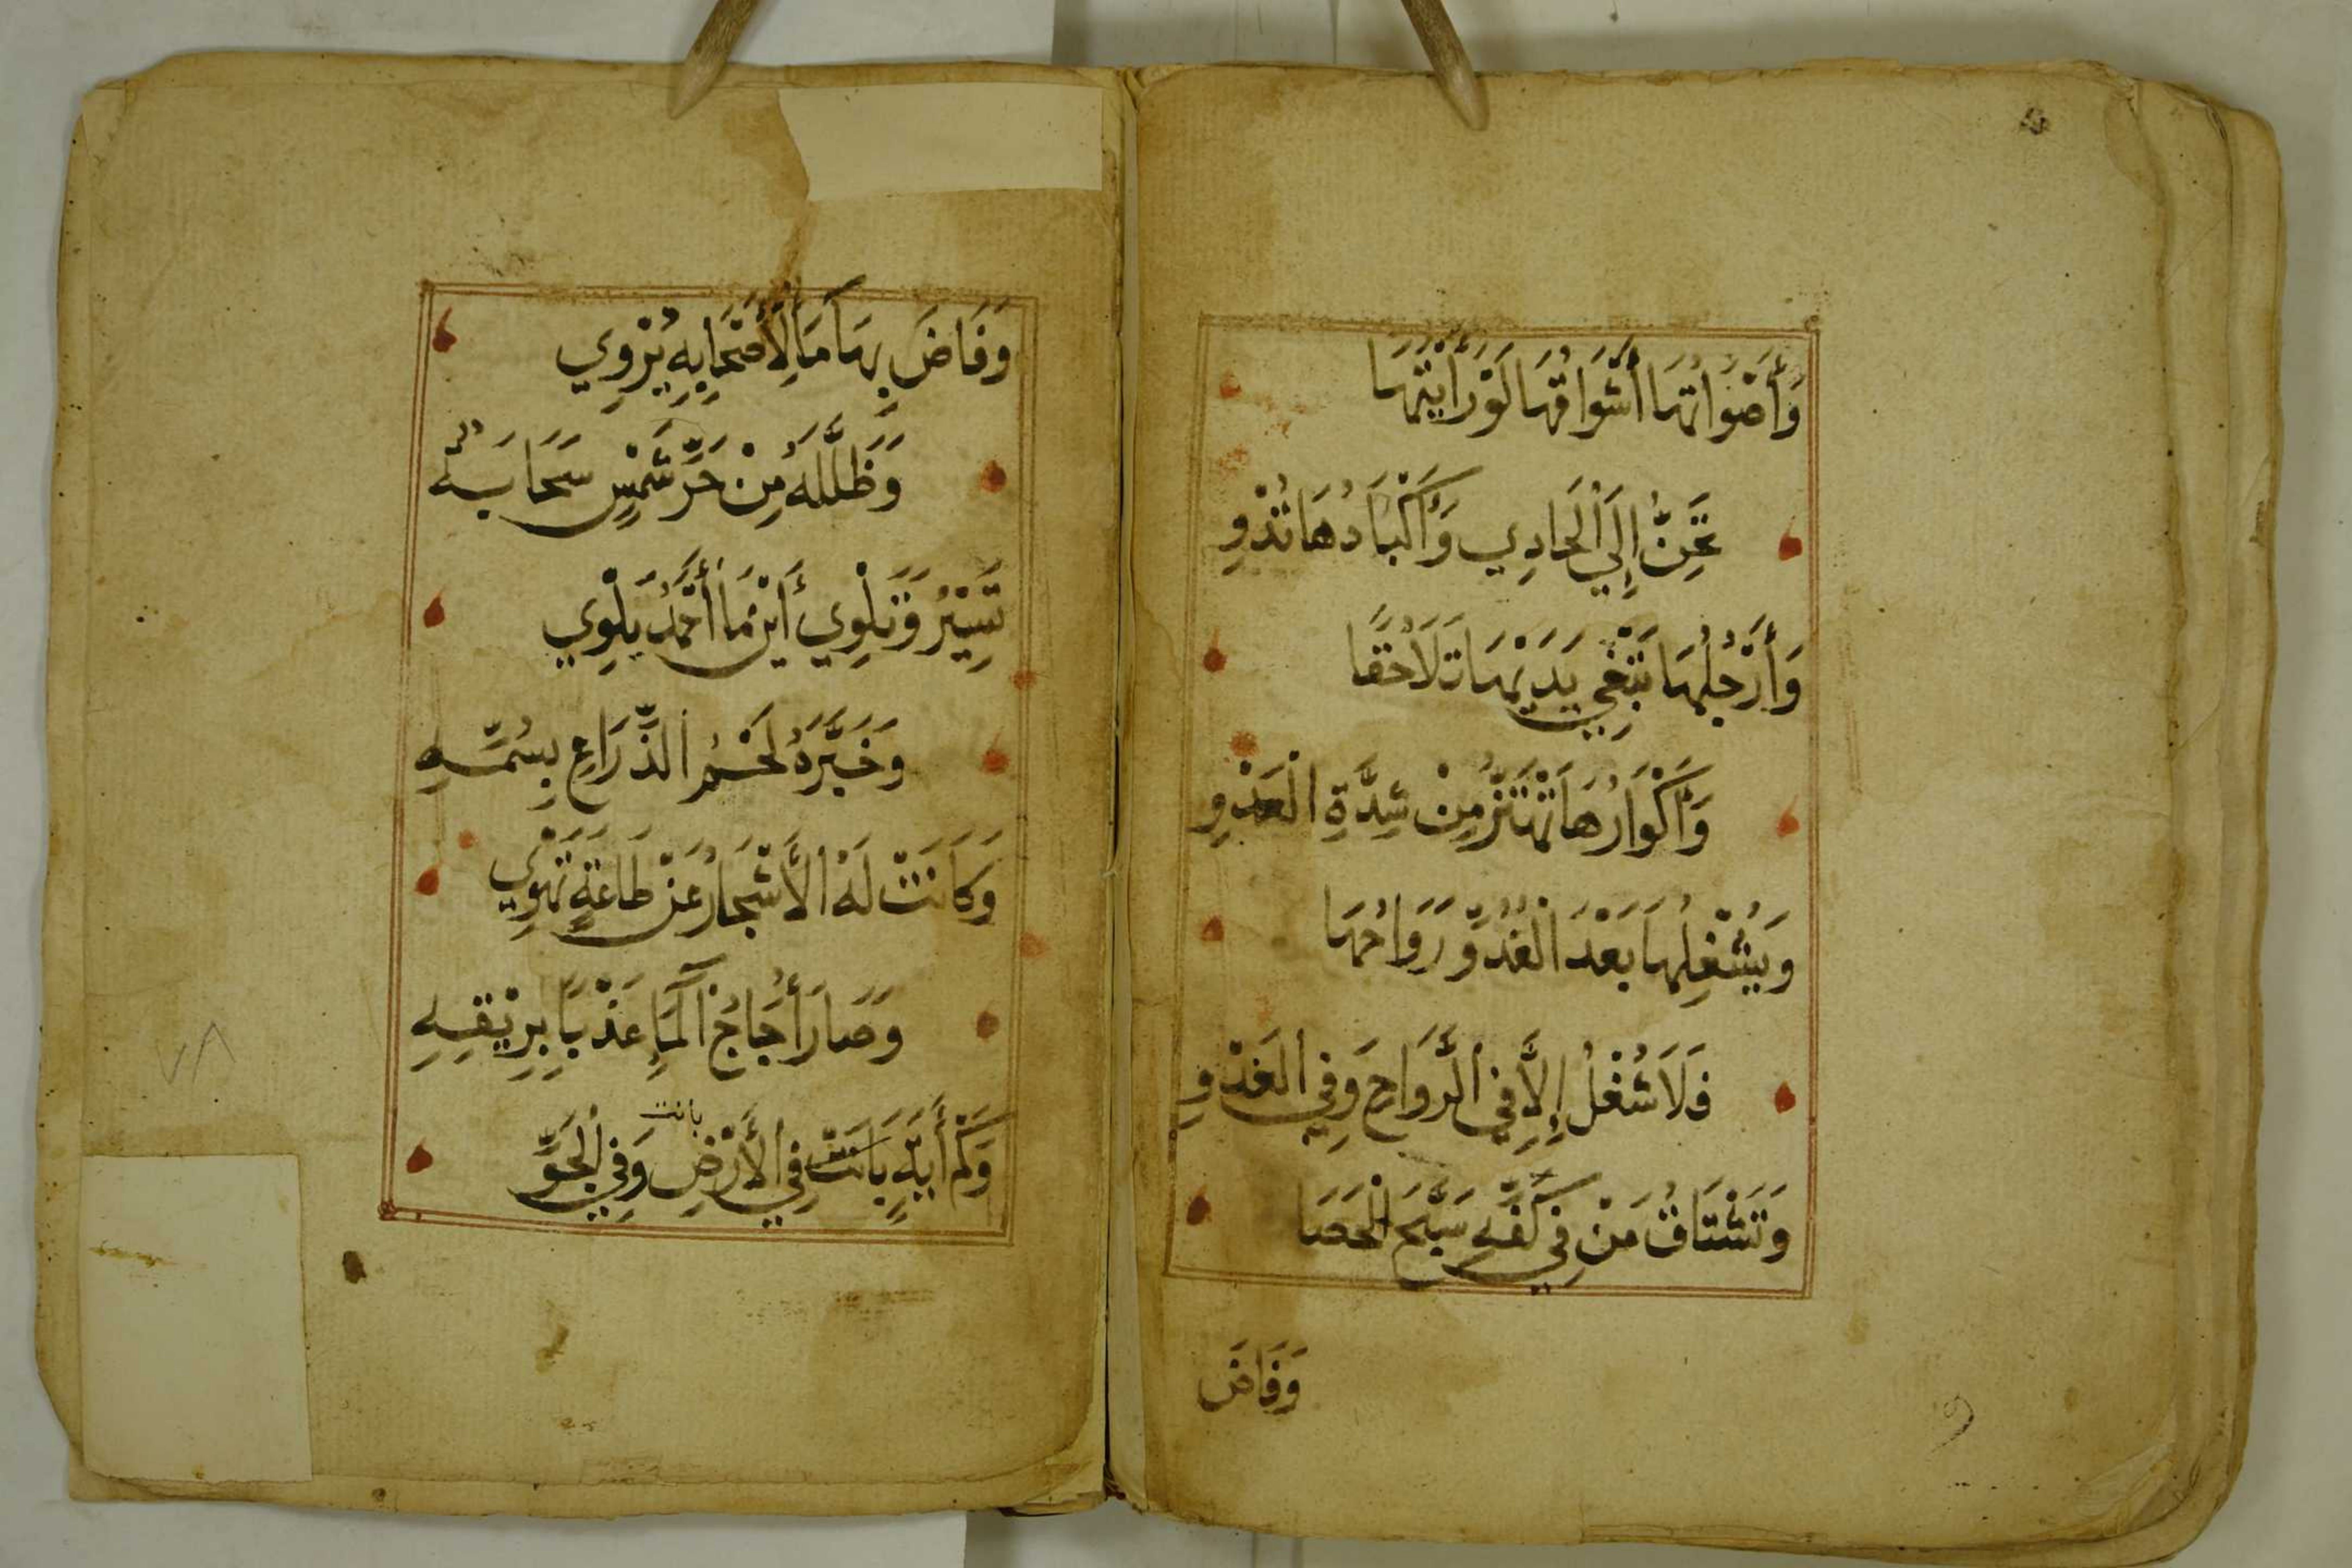 وَأَضْوَاتُهَا أَشْوَاقُهَا لَوْ رَأَيْتَهَا
تَحِنُّ إِلَي الْحَادِي وَأَكْبَادُهَا تُذْوِ
وَأَرْجُلُهَا تَبْتَغِي يَدَيْهَا تَلَاحُقًا
وَأَكْوَارُهَا تَهْتَزُّ مِنْ شِدَّةِ الْعَدْوِ
وَيُشْغِلُهَا بَعْدَ الْغُدُوِّ رَوَاحُهَا
فَلَا شُغْلُ إِلَّا فِي الرَّوَاحِ وَفِي الْغَدْوِ
وَتَشْتَاقُ مَنْ فِي كَفِّهِ سَبَّحَ الْحَصَا
وَفَاضَ
وَفَاضَ بِهَا مَاءٌ لِأَصْحَابِهِ يُرْوِي
وَظَلَّلَهُ مِنْ حَرِّ شَمْسٍ سَحَابَةٌ
تَسِيْرُ وَتَلْوِي أَيْنَ مَا أَحْمَدُ يَلْوِي
وَخَبَّرَهُ لَحْمُ الذِّرَاعِ بِسُمِّهِ
وَكَانَتْ لَهُ الْأَشْجَارُ عَنْ طَاعَةٍ تَهْوِي
وَصَارَ أُجَاجُ الْمَآءِ عَذْبًا بِرِيْقِهِ
بانت
وَكَمْ أَيَةٍ بَانَتْ فِي الْأَرْضِ وَفِي الْجَوِّ
٧٨